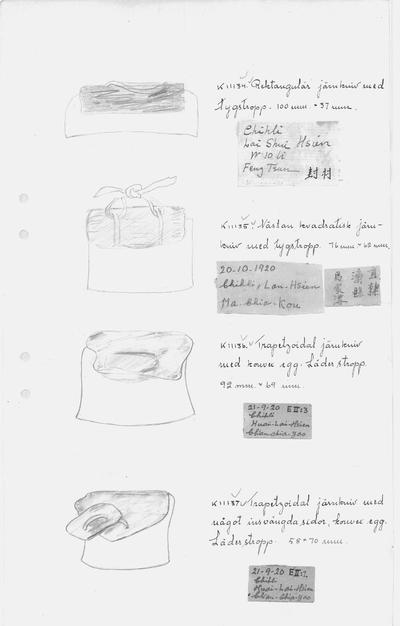 K 11134. Rektangulär järnkniv med
tygstropp. 100 mm. × 37 mm.
Chihli
Lai Shui Hsien
W 10 li
Feng Tsun 封村
K 11135. Nästan kvadratisk järn-
kniv med tygstropp. 76 mm × 62 mm.
20-10-1920
Chihli, Lan-Hsien
Ma-Chia-Kou
直隸
灤縣
馬家溝
K 11136. Trapetzoidal järnkniv
med konvex egg. Läderstropp.
92 mm. × 69 mm.
21-9-20 EII:3
Chihli
Huai-Lai-Hsien
K 11137. Trapetzoidal järnkniv med
något insvängda sidor, konvex egg.
Läderstropp. 58 × 70 mm.
21-9-20
Chihli
Huai-Lai-Hsien